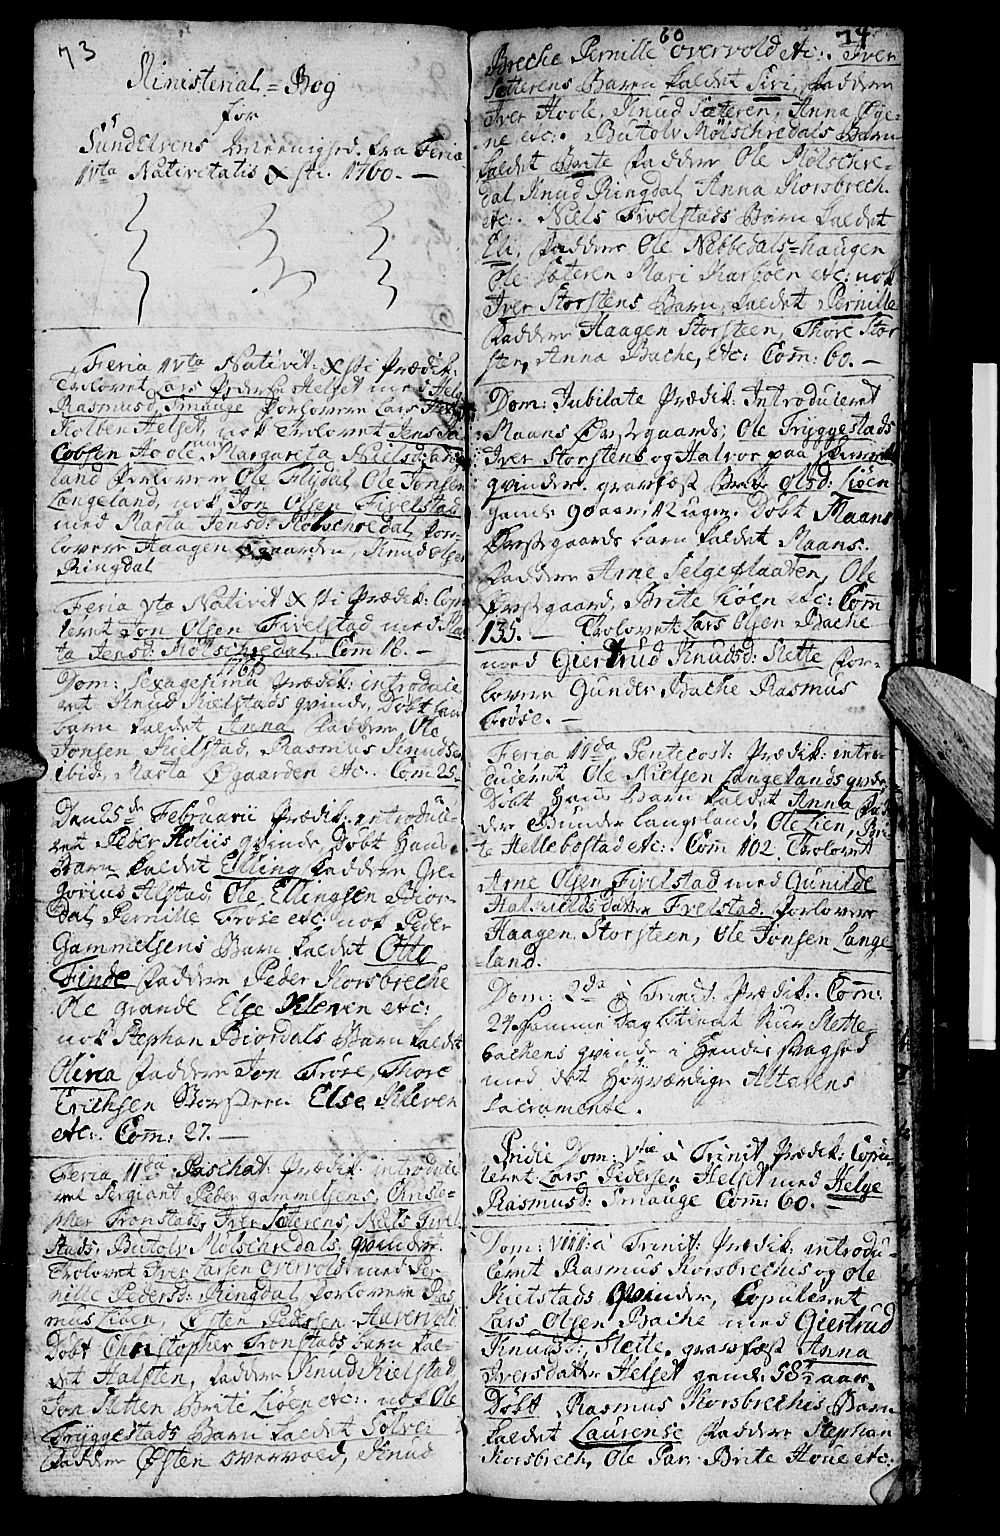 73
Ministerial=Bog
for
Sundelvens Meenighed fra Feria
IVta Nativitatis Xsti. 1760. —
Feria IVta Nativit: Xsti Prædik:
Trolovet Lars Peders: Helset med Helge
Rasmusd. Smauge forlovere Lars
Holten Helset, nok Trolovet Jens Ja-
cobsen Hoole, Margareta Nielsd:
land forlovere Ole Flydal Ole Jonsen
Langeland, nok Jon Olsen Fivelstad
med Marta Jensd: Mölschredal, for-
lovere Haagen Øgaarden, Knud Olsen
Ringdal
Feria Vta Nativit Xsti Prædik: Copu
leret Jon Olsen Fivelstad med Mar
ta Jensd: Mölschredal. Com 18. —
1760
Dom: Sexagesima Prædik: introduce
ret Knud Kielstads qvinde, Døbt hans
barn kaldet Anna faddere Ole
Jonsen Kielstad, Rasmus Knudsen
ibid, Marta Øgaarden etc: Com 25.
Den 25de Februarii Prædik: introduce-
ret Peder Holiis qvinde, Døbt Hans
Barn kaldet Elling faddere Gre-
gorius Alstad, Ole Ellingsen Bior-
dal, Pernille Frøse etc: nok Peder
Gammelsens Barn kaldet Otto
Finde faddere Peder Korsbreche
Ole grande Else Kleven etc:
nok Stephan Biordals Barn kaldet
Olina faddere Jon Frøse, Thore
Erichsen Storsteen Else Kleven
etc: Com: 27. —
Feria IIda Paschat: Prædik: introduce
ret Sergiant Peder gammelsens, Christo-
pher Tronstads, Iver Sæterens, Niels Fivel
stads, Butolv Mölschredals qvinder.
Trolovet Iver Larsen Overvold med Per
nille Pedersd: Ringdal forlovere Ras
mus Liøen Østen Pedersen Aurevold
Døbt Christopher Tronstads barn kal-
det Halsten, faddere Knud Kielstad,
Jon Sletten Brite Liøen etc: nok Ole
Tryggestads Barn kaldet Solvei
faddere Østen overvold, Knud
60
74
Breche Pernille overvold etc: Iver
Sæterens Barn kaldet Siri, faddere
Iver Hoole, Knud Sæteren, Anna Øye-
ne etc: Butolv Mölschredals Barn
kaldet Brite faddere Ole Mölschre-
dal, Knud Ringdal, Anna Korsbrech
etc: Niels Fivelstads Barn kaldet
Eli, faddere Ole Nebbedals=haugen
Ole Sæteren Mari Karboen etc: nok
Iver Storstens Barn, kaldet Pernille
faddere Haagen Storsteen, Thore Stor
sten, Anna Bache, etc: Com: 60. —
Dom: Jubilate Prædik: Introduceret
Maans Øvstegaards, Ole Tryggestads
Iver Storstens og Halvor paa
qvinder. gravfæst Brite Olsd: Liøen
gaml: 90 aar, 12 uger. Døbt Maans
Øvstegaards barn kaldet Maans.
faddere Arne Selgeplaatten, Ole
Øvstegaard, Brite Liøen etc: Com
135. — Trolovet Lars Olsen Bache
med Giertrud Knudsd: Slette for-
lovere Gunder Bache Rasmus
Frøse. —
Feria IIda Pentecost: Prædik: intro-
duceret Ole Nielsen Langelands qvinde,
Døbt Hans Barn kaldet Anna fad
dere Gunder Langeland, Ole Lien, Bri
te Hellebostad etc: Com 102. Trolovet
Arne Olsen Fivelstad med Gunilde
Halvields datter Fivelstad. forlovere
Haagen Storsteen, Ole Jonsen Lange-
=land.
Dom: 2da à Trinit: Prædik: Com:
24. Samme Dag betient Siur Slette-
bachens qvinde i Hendis svaghed
med det Höyværdige Alterens
Sacramente.
Pridie Dom: à Trinit Prædik: Copu-
leret Lars Pedersen Helset med Helge
Rasmusd: Smauge Com: 60. —
Dom: VIII à Trinit: Prædik: introdu-
ceret Rasmus Korsbrechis og Ole
Kielstads Qvinder, Copuleret
Lars Olsen Bache med Giertrud
Knudsd: Slette. gravfæst Anna
Iversdatter Helset gaml: 58½ aar.
Døbt Rasmus Korsbrechis Barn
kaldet Laurense faddere Stephan
Korsbrech, Ole Par: Brite Houe etc: